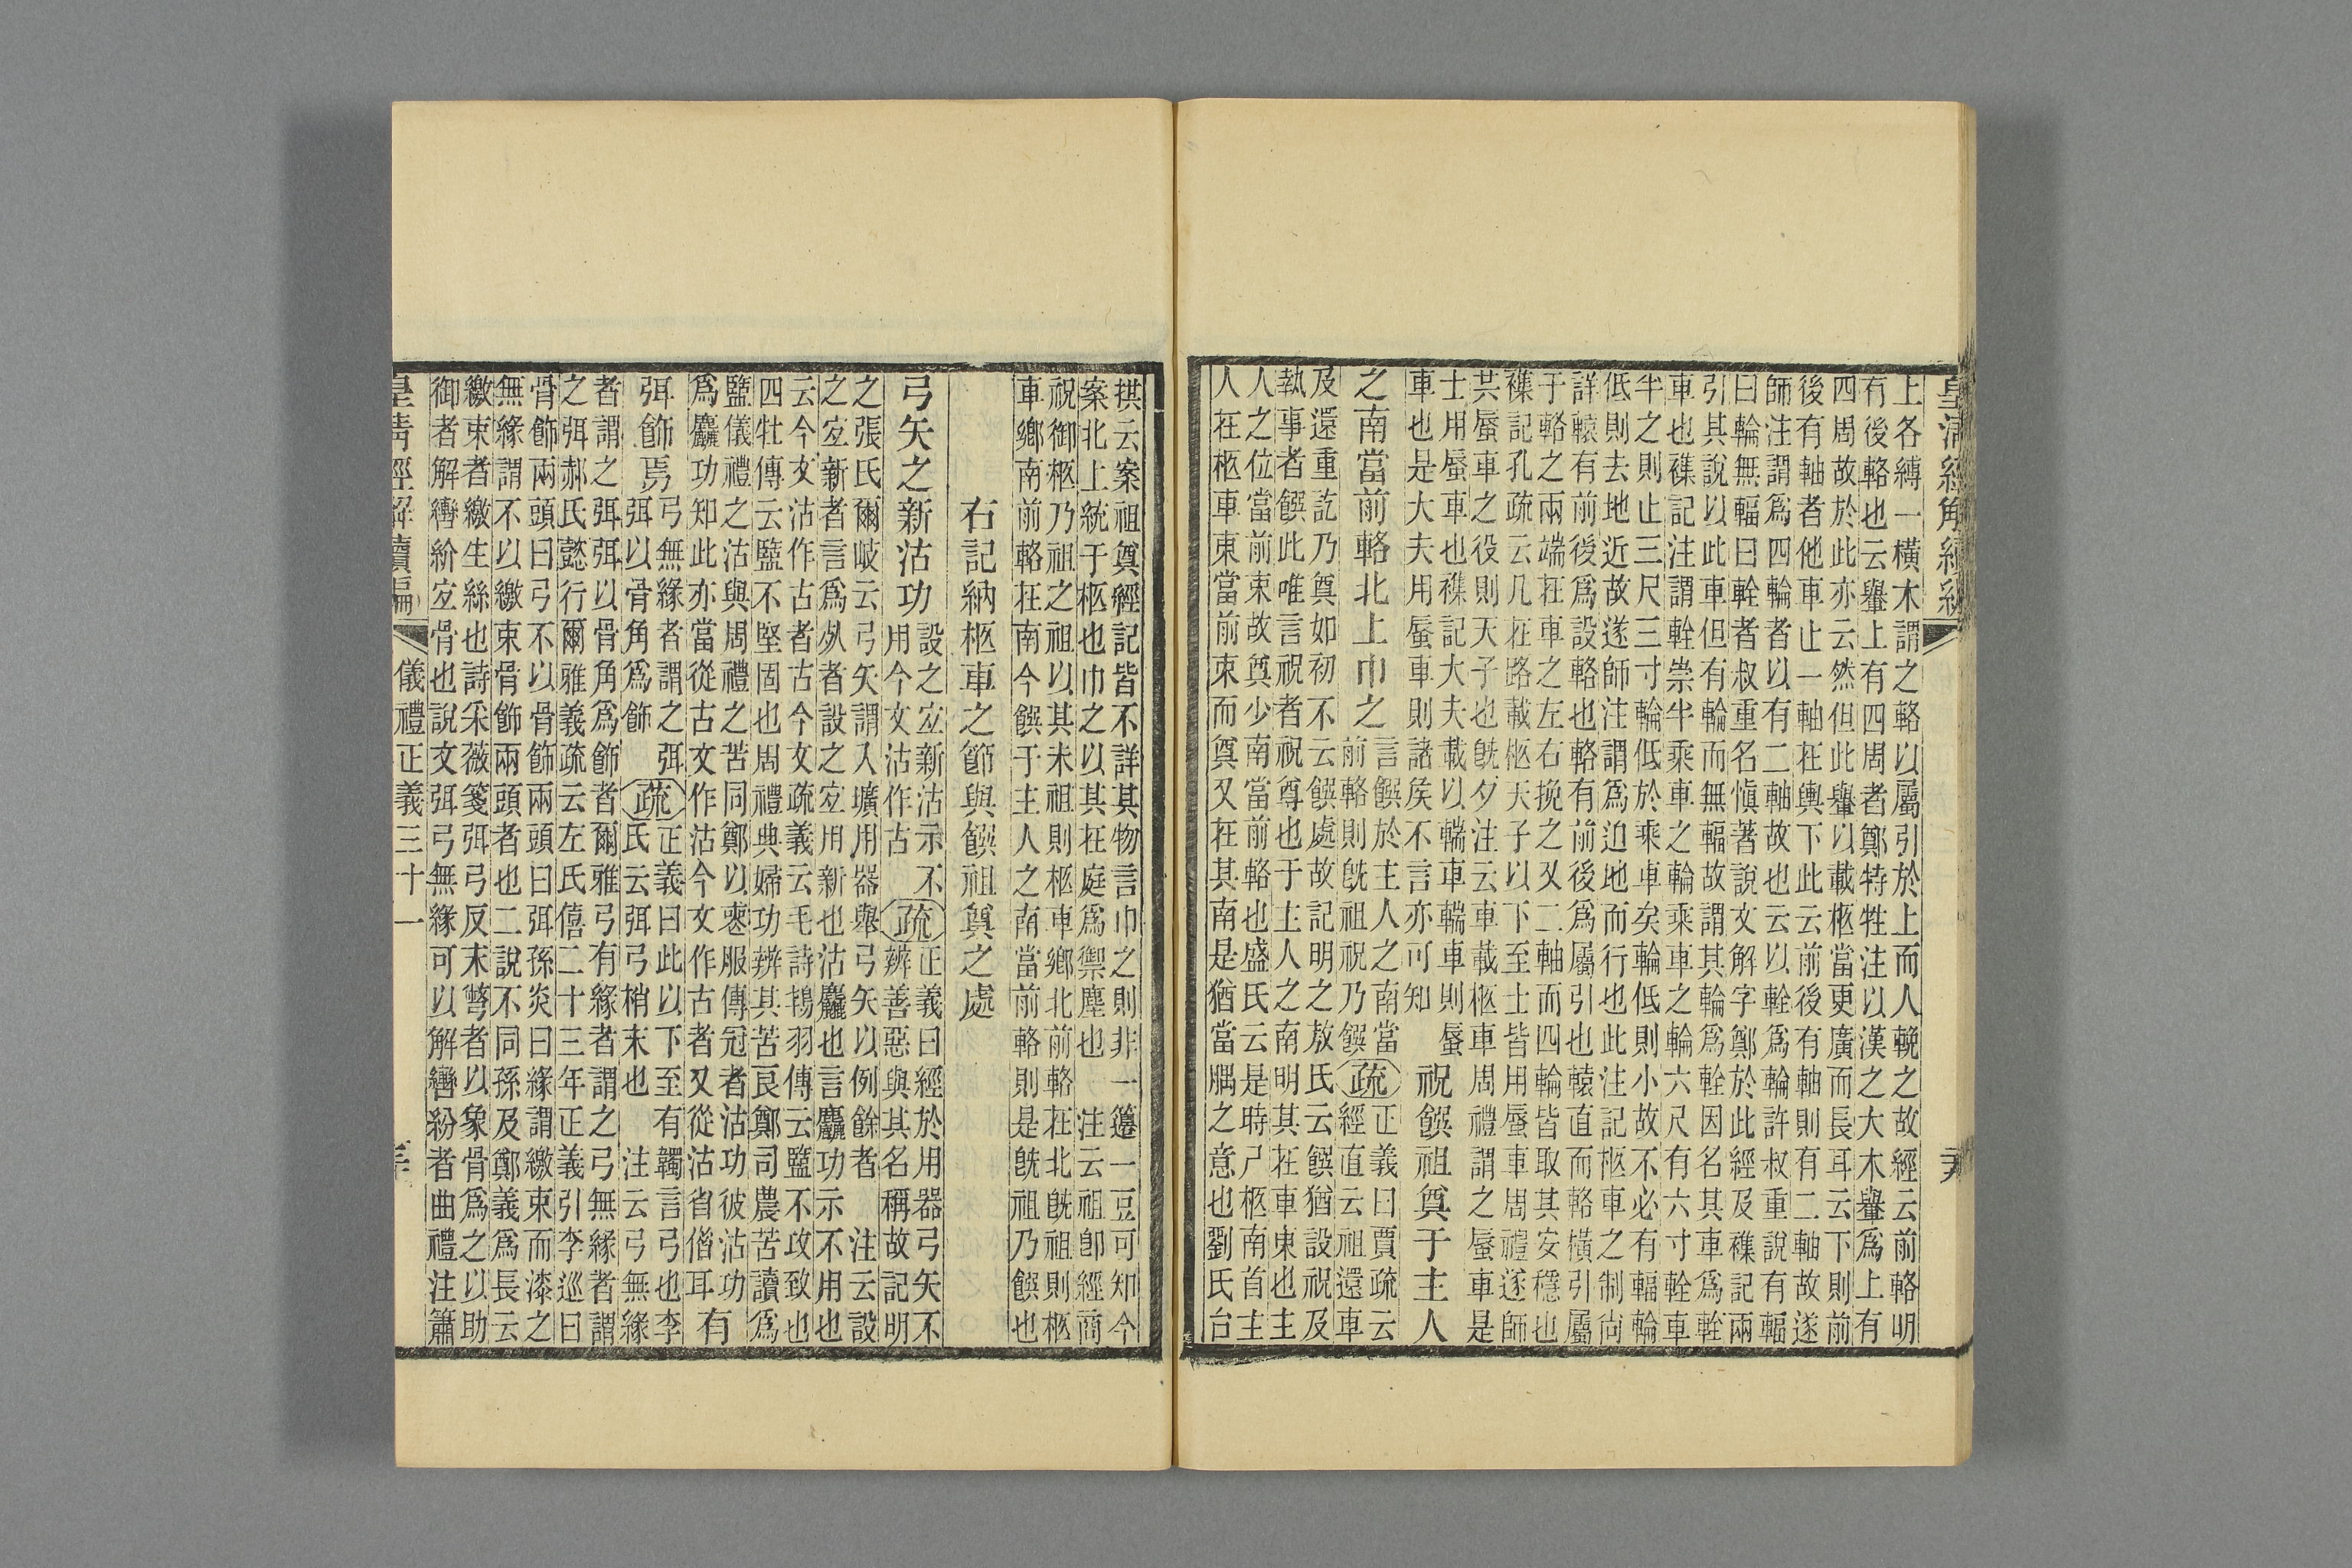 上各縛一橫木謂之輅以屬引於上而人輓之故經云前輅明
有後輅也云轝上有四周者鄭特牲注以漢之大木轝爲上有
四周故於此亦云然但此轝以載柩當更廣而長耳云下則前
後有軸者他車止一軸在輿下此云前後有軸則有二軸故遂
師注謂爲四輪者以有二軸故也云以輇爲輪許叔重說有輻
曰輪無輻曰輇者叔重名愼著說文解字鄭於此經及襍記兩
引其說以此車但有輪而無輻故謂其輪爲輇因名其車爲輇
車也襍記注謂輇崇半乘車之輪乘車之輪六尺有六寸輇車
半之則止三尺三寸輪低於乘車矣輪低則小故不必有輻輪
低則去地近故遂師注謂爲迫地而行也此注記柩車之制尙
詳轅有前後爲設輅也輅有前後爲屬引也轅直而輅橫引屬
于輅之兩端在車之左右挽之又二軸而四輪皆取其安穩也
襍記孔疏云凡在路載柩天子以下至士皆用蜃車周禮遂師
共蜃車之役則天子也旣夕注云車載柩車周禮謂之蜃車是
士用蜃車也襍記大夫載以輲車輲車則蜃
車也是大夫用蜃車則諸矦不言亦可知
祝饌祖奠于主人
之南當前輅北上巾之
言饌於主人之南當
前輅則旣祖祝乃饌
疏
正義曰賈疏云
經直云祖還車
及還重訖乃奠如初不云饌處故記明之敖氏云饌猶設祝及
執事者饌此唯言祝者祝尊也于主人之南明其在車東也主
人之位當前束故奠少南當前輅也盛氏云是時尸柩南首主
人在柩車東當前束而奠又在其南是猶當腢之意也劉氏台
拱云案祖奠經記皆不詳其物言巾之則非一籩一豆可知今
案北上統于柩也巾之以其在庭爲禦塵也 注云祖卽經商
祝御柩乃祖之祖以其未祖則柩車鄉北前輅在北旣祖則柩
車鄉南前輅在南今饌于主人之南當前輅則是旣祖乃饌也
右記納柩車之節與饌祖奠之處
弓矢之新沽功
設之宐新沽示不
用今文沽作古
疏
正義曰經於用器弓矢不
辨善惡與其名稱故記明
之張氏爾岐云弓矢謂入壙用器舉弓矢以例餘者 注云設
之宐新者言爲死者設之宐用新也沽麤也言麤功示不用也
云今文沽作古者古今文疏義云毛詩鴇羽傳云盬不攻致也
四牡傳云盬不堅固也周禮典婦功辨其苦良鄭司農苦讀爲
盬儀禮之沽與周禮之苦同鄭以喪服傳冠者沽功彼沽功
爲麤功知此亦當從古文作沽今文作古者又從沽省借耳
有
弭飾焉
弓無緣者謂之弭
弭以骨角爲飾
疏
正義曰此以下至有韣言弓也李
氏云弭弓梢末也 注云弓無緣
者謂之弭弭以骨角爲飾者爾雅弓有緣者謂之弓無緣者謂
之弭郝氏懿行爾雅義疏云左氏僖二十三年正義引李巡曰
骨飾兩頭曰弓不以骨飾兩頭曰弭孫炎曰緣謂繳束而漆之
無緣謂不以繳束骨飾兩頭者也二說不同孫及鄭義爲長云
繳束者繳生絲也詩采薇箋弭弓反末彆者以象骨爲之以助
御者解轡紒宐骨也說文弭弓無緣可以解轡紛者曲禮注簫
皇清經解續編 儀禮正義三十一